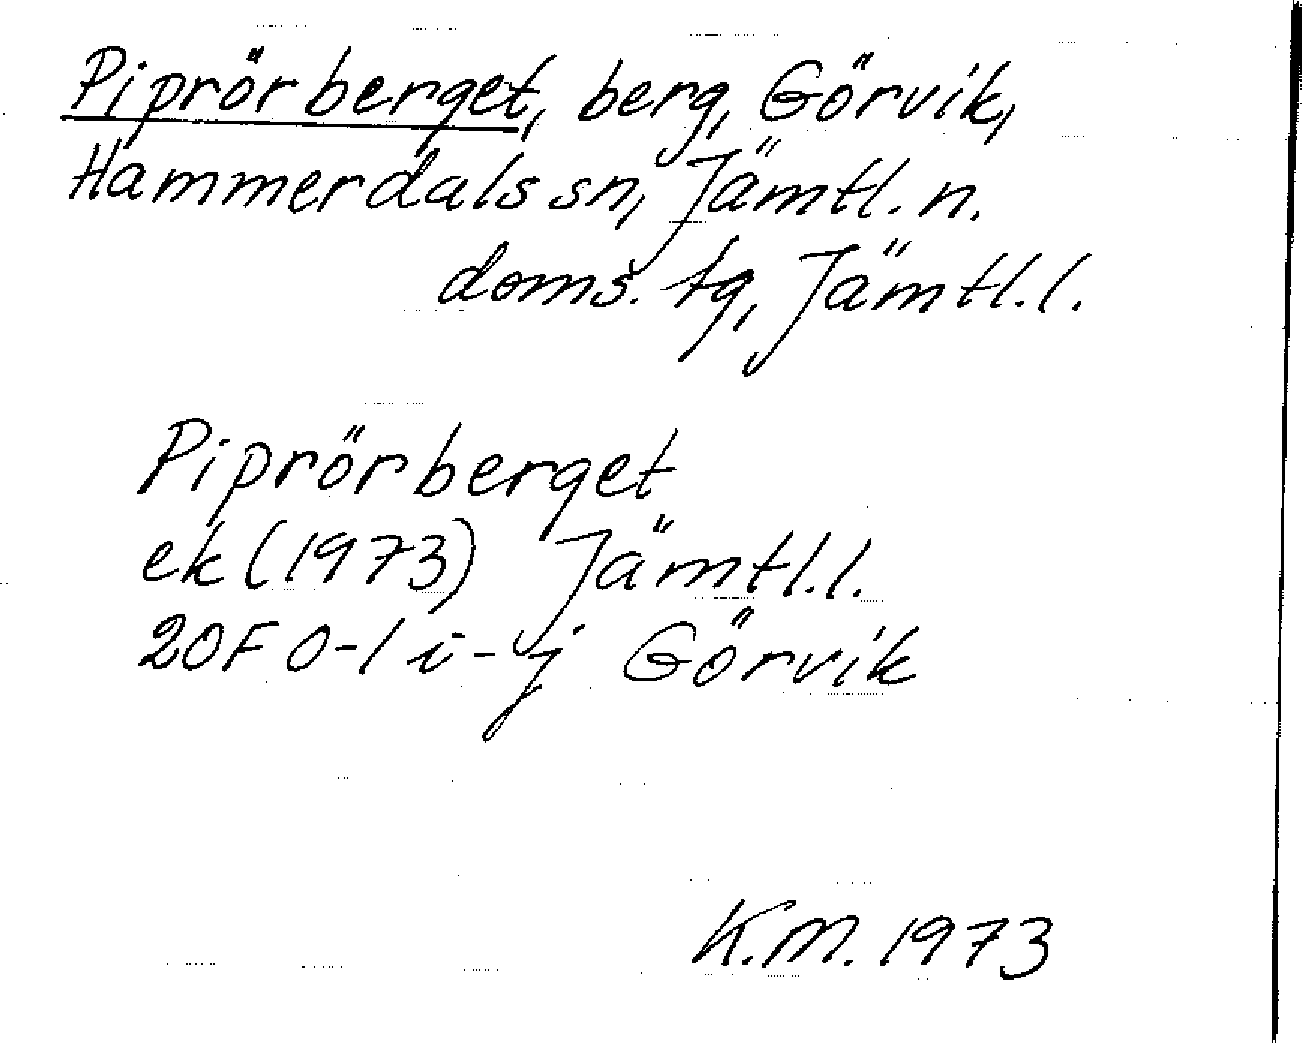 Piprörberget, berg, Görvik,
Hammerdals sn, Jämtl. n.
doms. tg, Jämtl. l.
Piprörberget
ek (1973) Jämtl. l.
20F 0-1 i-j Görvik
K.M. 1973